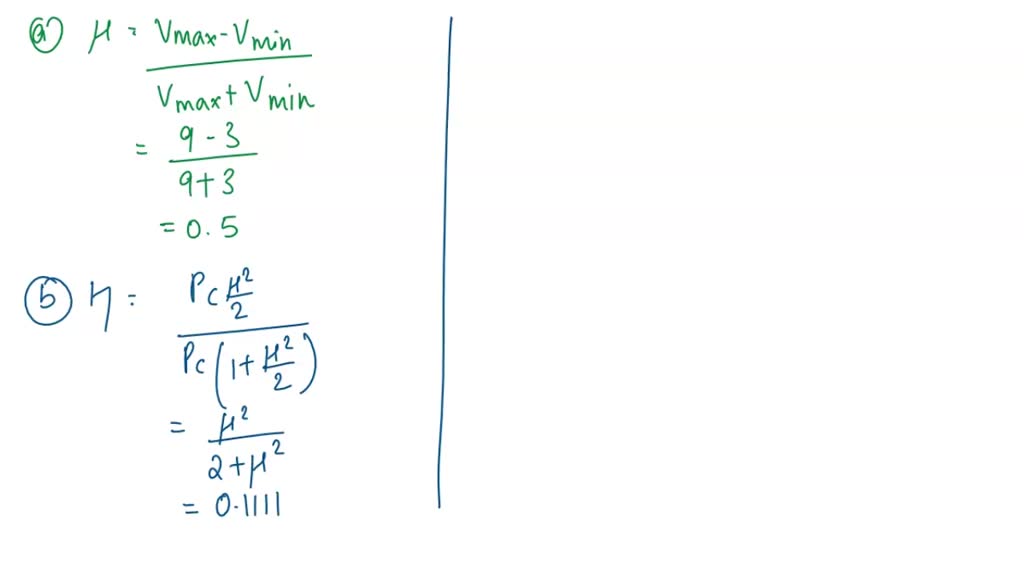 (a) μ = Vmax - Vmin
Vmax + Vmin
= 9 - 3
9 + 3
= 0.5
(b) η = Pc μ²/2
Pc (1 + μ²/2)
= μ²
2 + μ²
= 0.1111